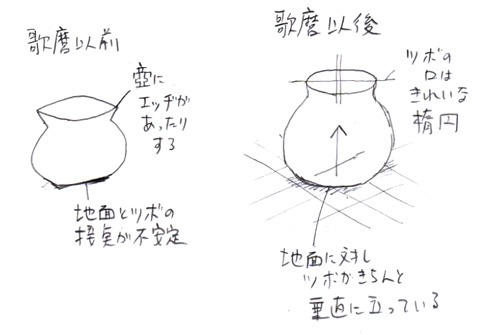 歌麿以前
壺に
エッヂが
あったり
する
地面とツボの
接点が不安定
歌麿以後
ツボの
口は
きれいな
楕円
地面に対し
ツボがきちんと
垂直に立っている